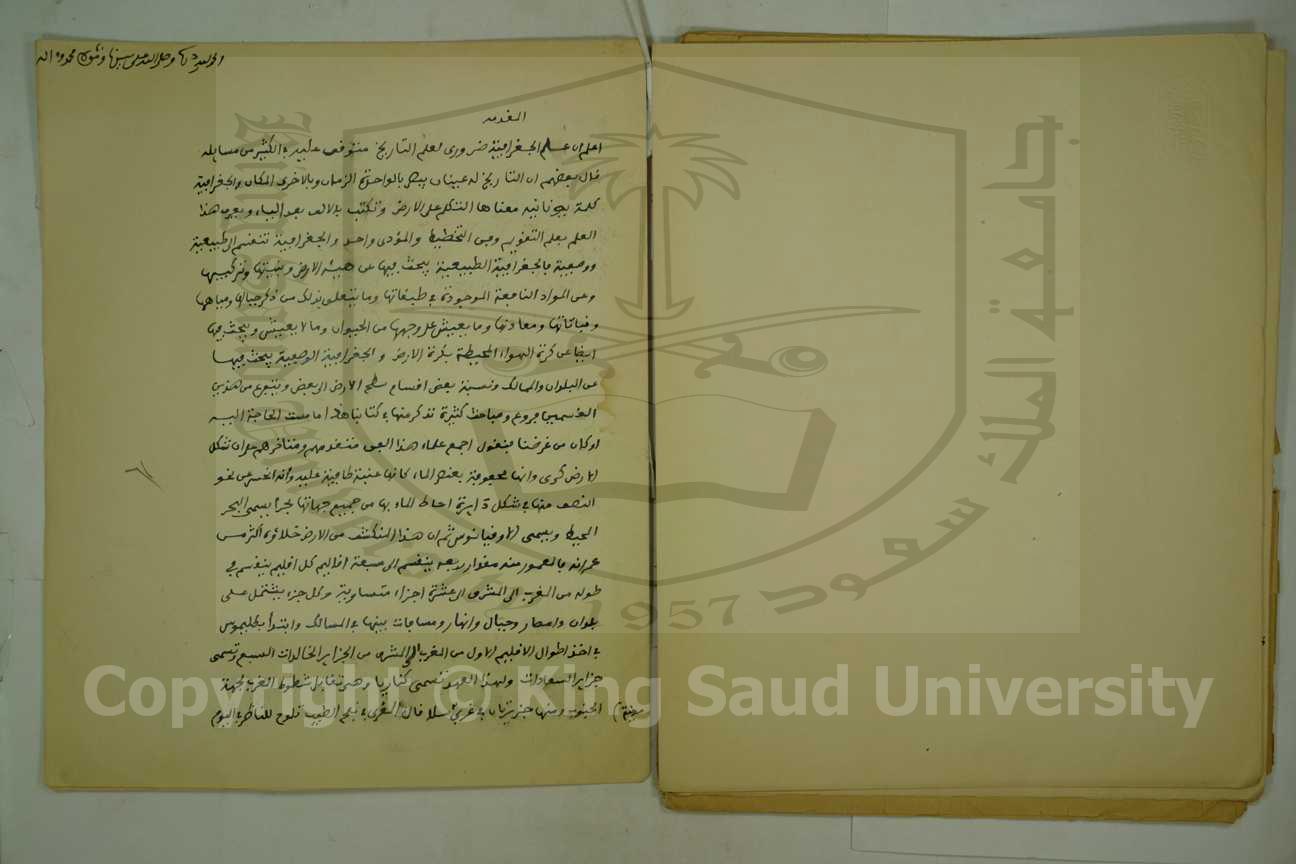 المقدمة
اعلم ان علم الجغرافية ضروري لعلم التاريخ متوقف عليه في الكثير من مسايله
قال بعضهم ان التاريخ له عينان يبصر بالواحدة الزمان وبالاخرى المكان والجغرافية
كلمة يونانية معناها التكلم على الارض وتكتب بالالف بعد الياء ويعرف هذا
العلم بعلم التقويم وفن التخطيط والمؤدى واحد والجغرافية تنقسم الى طبيعية
ووضعية فالجغرافية الطبيعية يبحث فيها عن هيئة الارض وبنيتها وتركيبها
وعن المواد النافعة الموجودة في طبقاتها وما يتعلق بذلك من ذكر جبالها ومياهها
ونباتاتها ومعادنها وما يعيش على وجهها من الحيوان وما لا يعيش ويبحث فيها
ايضا عن كرة الهواء المحيطة بكرة الارض والجغرافية الوضعية يبحث فيها
عن البلدان والممالك ونسبة بعض اقسام سطح الارض الى بعض ويتفرع من هذين
القسمين فروع ومباحث كثيرة نذكر منها في كتابنا هذا ما مست الحاجة اليه
او كان من غرضنا فنقول اجمع علماء هذا الفن متقدمهم ومتاخرهم على ان شكل
الارض كروي وانها محفوفة بعنصر الماء كانها عنبة طافية عليه وانه انحسر عن نحو
النصف منها في شكل دايرة احاط الماء بها من جميع جهاتها بحرا يسمى البحر
المحيط ويسمى الاوقيانوس ثم ان هذا المنكشف من الارض خلاؤه اكثر من
عمرانه فالمعمور منه مقدار ربعه ينقسم الى سبعة اقاليم كل اقليم ينقسم في
طوله من المغرب الى المشرق الى عشرة اجزاء متساوية وكل جزء يشتمل على
بلدان وامصار وجبال وانهار ومسافات بينها في المسالك وابتدأ بطليموس
في اخذ اطوال الاقليم الاول من المغرب الى المشرق من الجزاير الخالدات السبع وتسمى
جزاير السعادات ولهذا العهد تسمى كناريا وهي تقابل شطوط المغرب لجهة
الجنوب ومنها جزيرتان في غربي سلا قال المقري في نفح الطيب تلوح للناظر في اليوم
جامعة الملك سعود
1957
Copyright © King Saud University